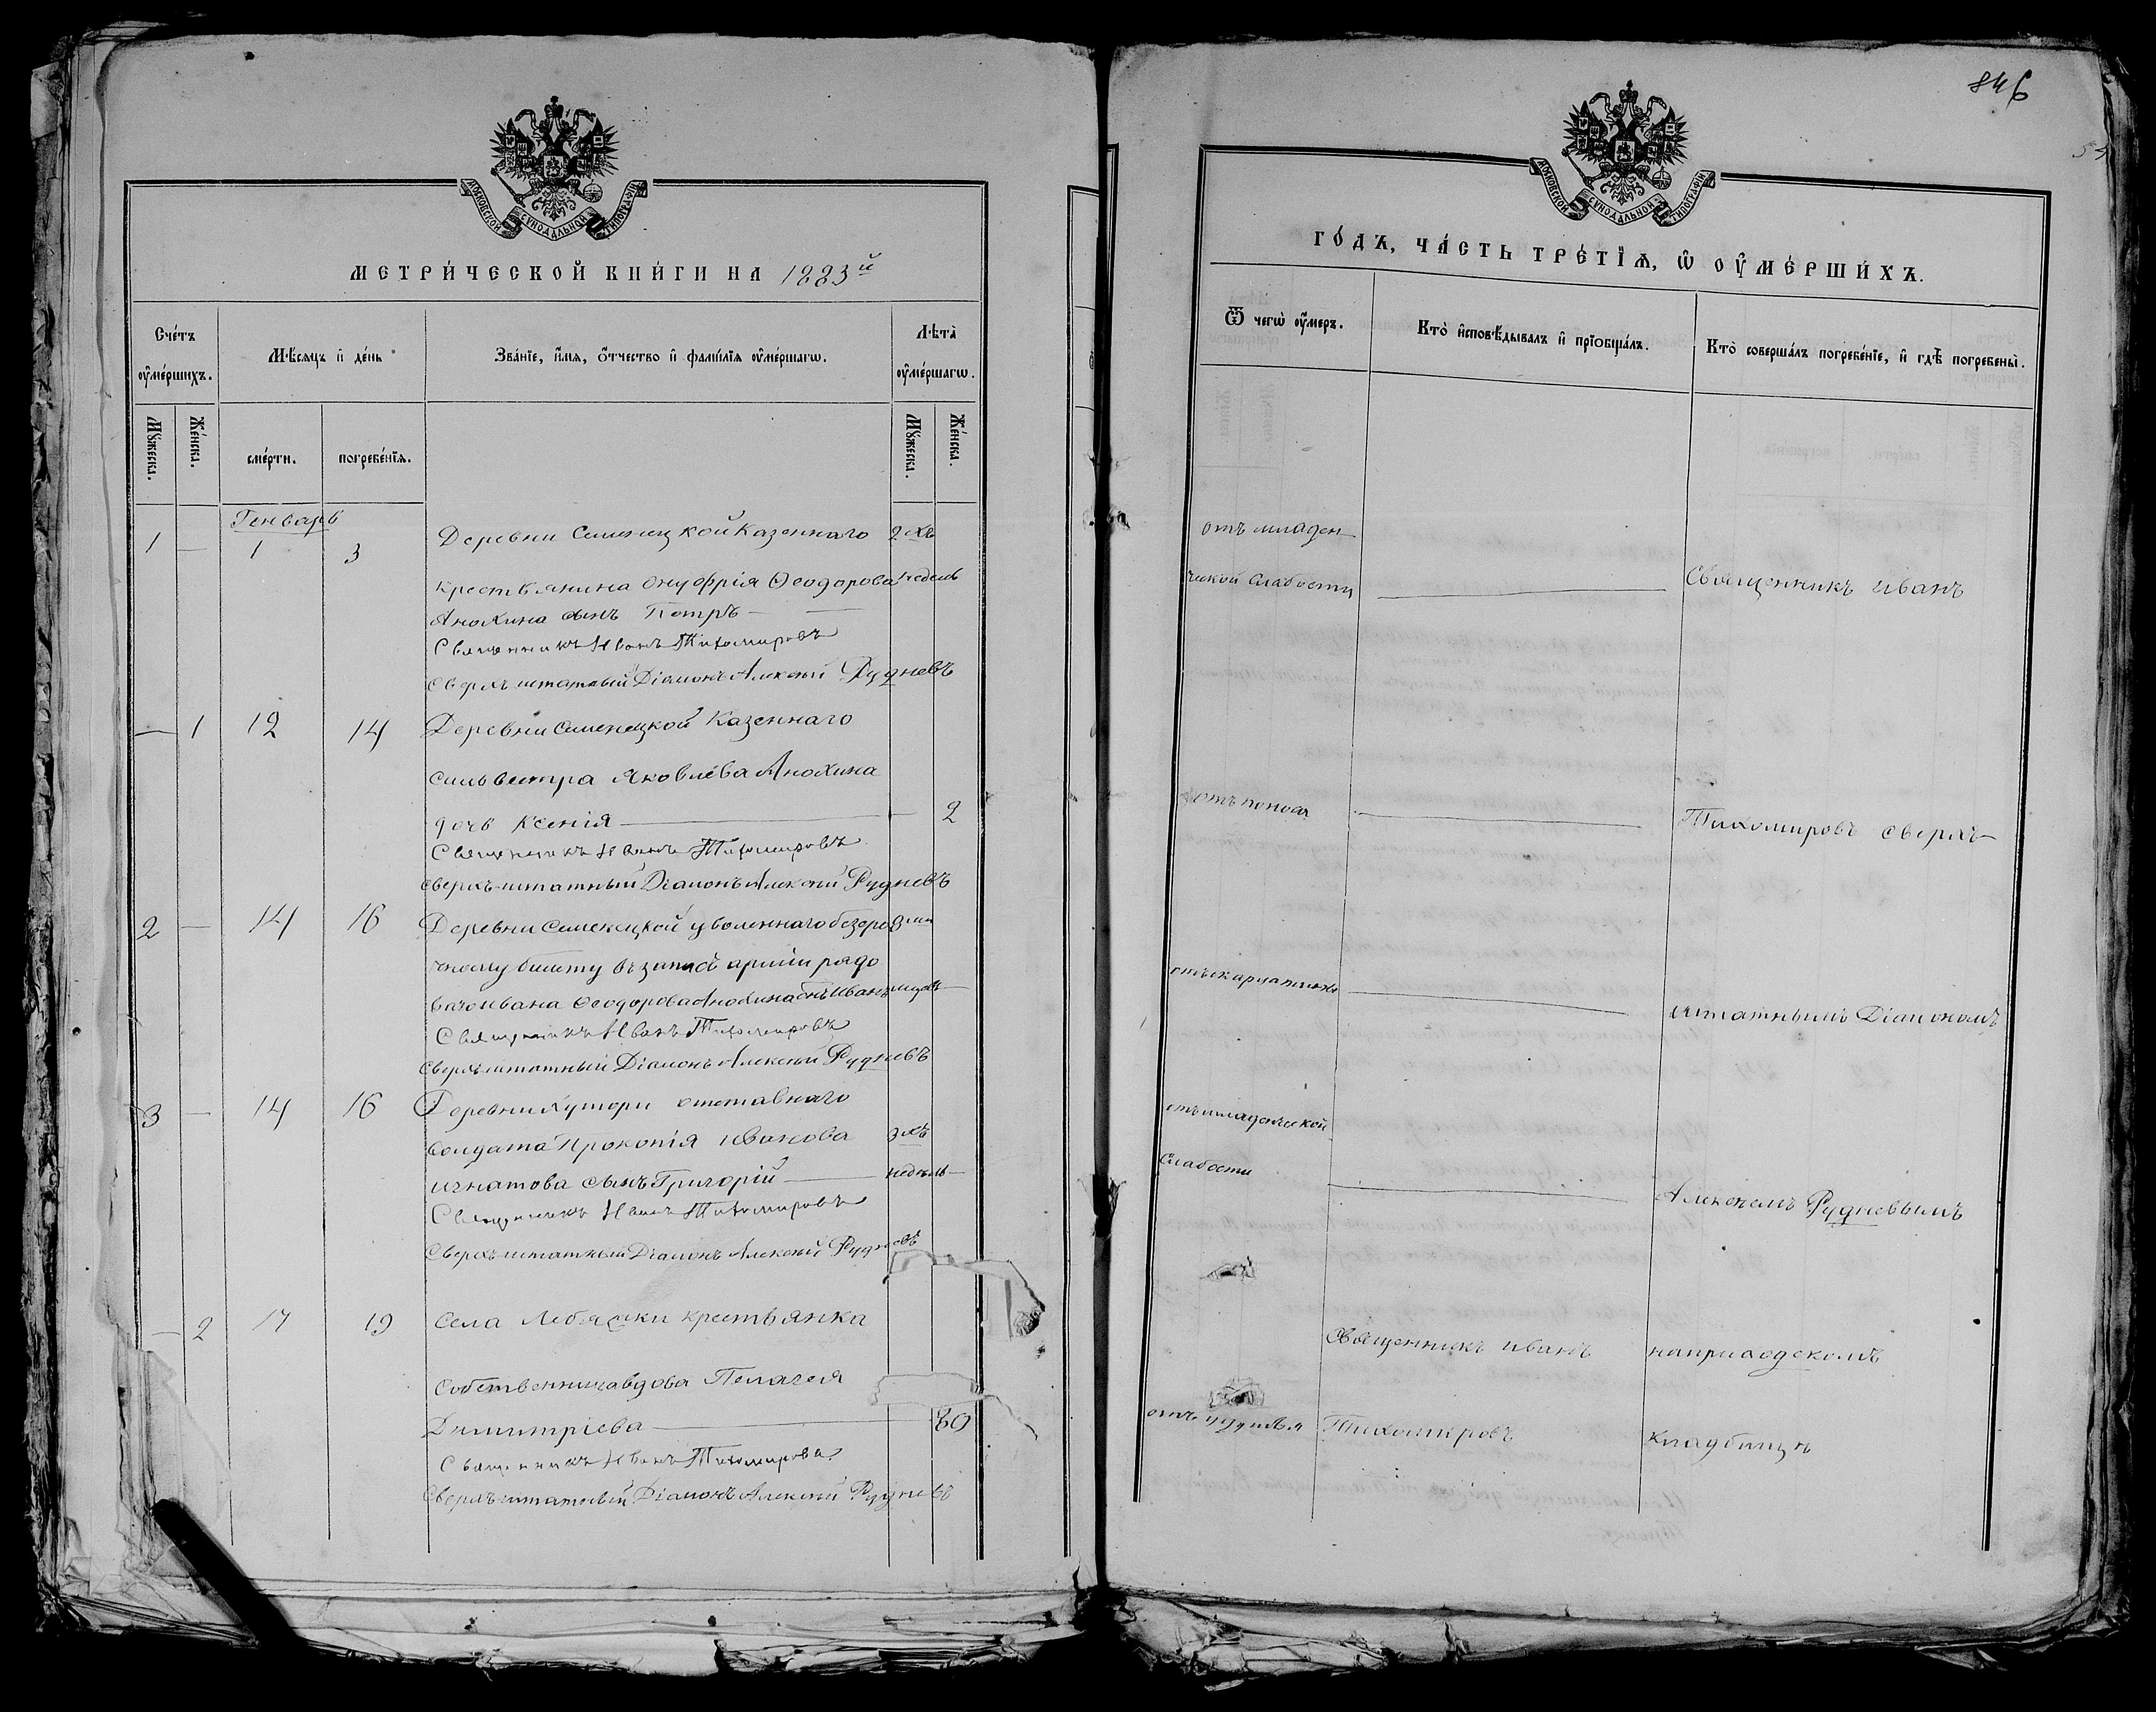 846
МОСКОВСКОЙ СѴНОДАЛЬНОЙ ТИПОГРАФІИ
МЕТРИ́ЧЕСКОЙ КНИ́ГИ НА 1883й
Сче́тъ оу҆ме́ршихъ.
Мѣ́сяцъ и҆ де́нь
Зва́нїе, и҆́мя, ѻ҆́тчество и҆ фами́лїя оу҆ме́ршагѡ.
Лѣ́та оу҆ме́ршагѡ.
Мꙋ́жеска.
Же́нска.
сме́рти.
погребе́нїѧ.
Мꙋ́жеска.
Же́нска.
Генварь
1 — 1 3 Деревни Семенецкой Казеннаго 2 хъ
крестьянина Онуфрія Ѳеодорова недель
Анохина сынъ Петръ —
Священникъ Иванъ Тихомировъ
Сверхъ-штатный Діаконъ Алексѣй Рудневъ
— 1 12 14 Деревни Семенецкой Казеннаго
Сильвестра Яковлева Анохина
дочь Ксенія — 2
Священникъ Иванъ Тихомировъ
сверхъ-штатный Діаконъ Алексѣй Рудневъ
2 — 14 16 Деревни Семенецкой уволеннаго безсро
чному билету въ запасъ арміи рядо
ваго Ивана Ѳеодорова Анохина Иванъ
Священникъ Иванъ Тихомировъ
Сверхъштатный Діаконъ Алексѣй Рудневъ
3 — 14 16 Деревни Хутори отставнаго
солдата Прокопія Иванова 3 хъ
Игнатова сынъ Григорій — недѣль —
Священникъ Иванъ Тихомировъ
Сверхъ-штатный Діаконъ Алексѣй Рудневъ
— 2 17 19 Села Лебяжки крестьянка
Собственника вдова Пелагея
Димитріева — 80
Священникъ Иванъ Тихомировъ
Сверхъ-штатный Діаконъ Алексѣй Рудневъ
МОСКОВСКОЙ СѴНОДАЛЬНОЙ ТИПОГРАФІИ
ГО́ДЪ, ЧА́СТЬ ТРЕ́ТЇѦ, Ѡ҆ ОУ҆МЕ́РШИХЪ.
Ѿ чегѡ̀ оу҆́меръ.
Кто̀ и҆сповѣ́дывалъ и҆ прїобща́лъ.
Кто̀ соверша́лъ погребе́нїе, и҆ гдѣ̀ погребены̀.
отъ младен
ческой слабости — Священникъ Иванъ
отъ поноса — Тихомировъ сверхъ-
отъ скарлатины — штатнымъ Діакономъ
отъ младенческой
слабости — Алексѣемъ Рудневымъ
Священникъ Иванъ на приходскомъ
отъ удушья Тихомировъ кладбищѣ